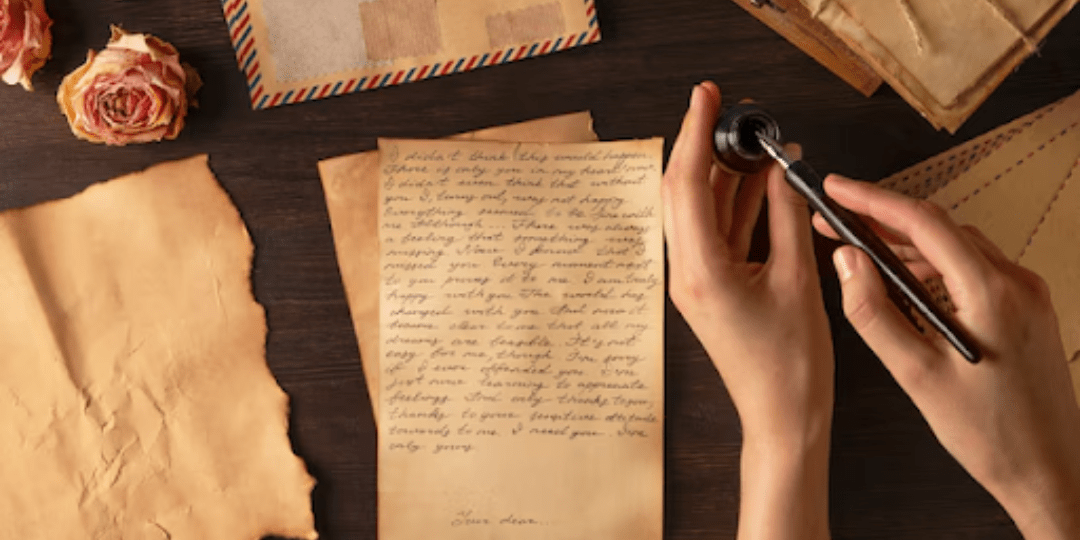 I didn't think this would happen.
There is only you in my heart now.
I didn't even think that without
you I, turns out, was not happy
Everything seemed to be fine with
me Although... There was always
a feeling that something was
missing. Now I know that I
missed you Every moment next
to you to me. I am truly
happy with you The world has
changed with you And now it
became clear to me that all my
dreams are feasible. It's not
easy for me, though. I'm sorry
if I ever offended you I'm
just now learning to appreciate
feelings And only thanks to you,
thanks to your sensitive attitude
towards to me. I need you. I'm
only yours
Your dear...